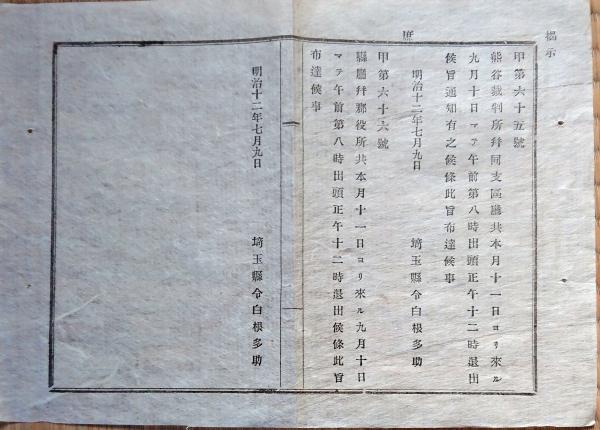 揭示
庶
甲第六十五號
熊谷裁判所并同支區廳共本月十一日ヨリ來ル
九月十日マテ午前第八時出頭正午十二時退出
候旨通知有之候條此旨布達候事
明治十二年七月九日
埼玉縣令白根多助
甲第六十六號
縣廳并郡役所共本月十一日ヨリ來ル九月十日
マテ午前第八時出頭正午十二時退出候條此旨
布達候事
明治十二年七月九日
埼玉縣令白根多助